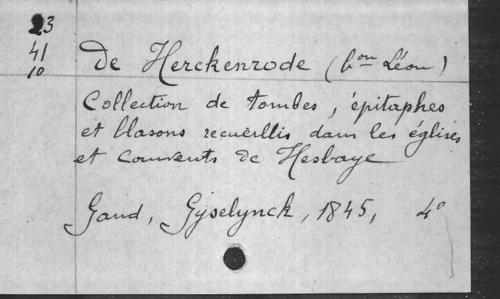 23
41
10
de Herckenrode (bon Léon)
Collection de tombes, épitaphes
et blasons recueillis dans les églises
et couvents de Hesbaye
Gand, Gyselynck, 1845, 4°